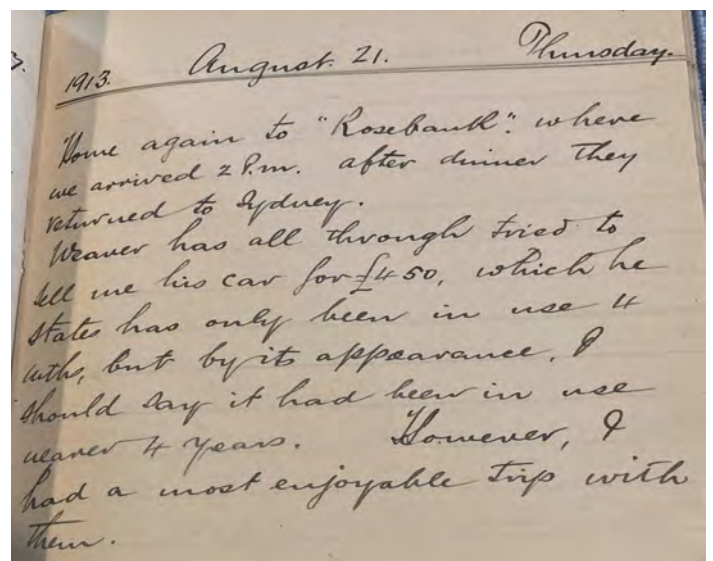 1913. August. 21. Thursday.
Home again to "Rosebank". where
we arrived 2 P.m. after dinner they
returned to Sydney.
Weaver has all through tried to
sell me his car for £450, which he
states has only been in use 4
mths, but by its appearance, I
should say it had been in use
nearer 4 years. However, I
had a most enjoyable trip with
them.